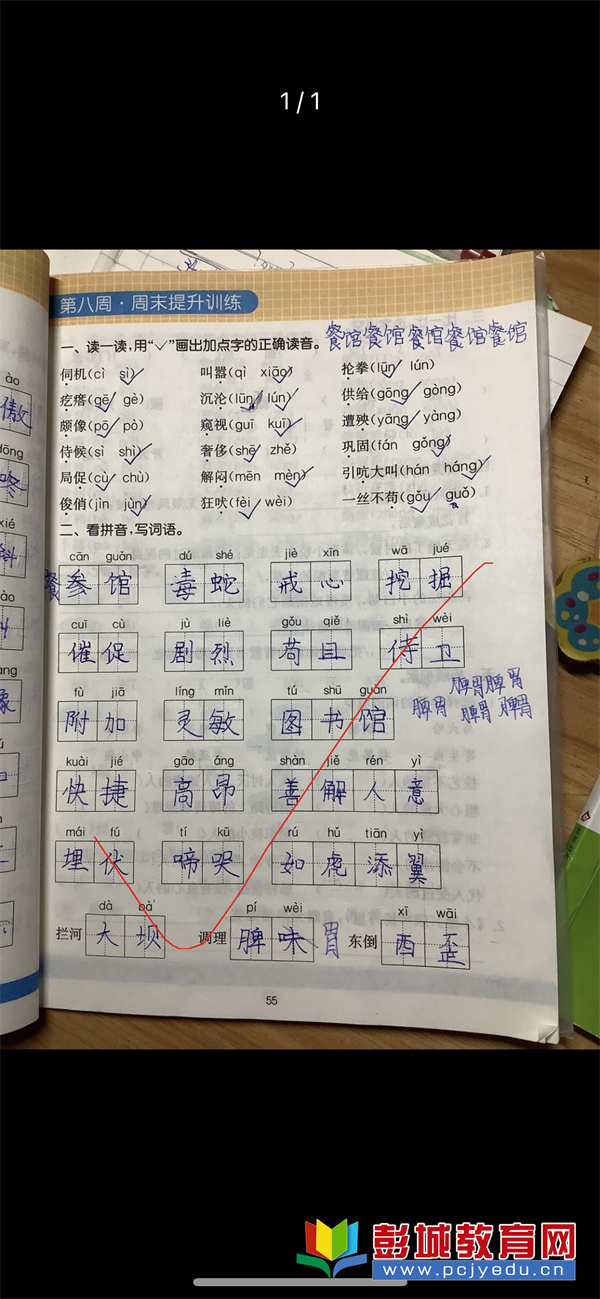 1/1
第八周·周末提升训练
一、读一读,用“✓”画出加点字的正确读音。 餐馆餐馆餐馆餐馆餐馆
伺机(cì sì) 叫嚣(qì xiāo) 抡拳(lūn lún)
疙瘩(gē gè) 沉沦(lūn lún) 供给(gōng gòng)
颇像(pō pò) 窥视(guī kuī) 遭殃(yāng yàng)
侍候(sì shì) 奢侈(shē zhě) 巩固(fán gǒng)
局促(cù chù) 解闷(mēn mèn) 引吭大叫(hán háng)
俊俏(jìn jùn) 狂吠(fèi wèi) 一丝不苟(gǒu guǒ)
二、看拼音,写词语。
cān guǎn dú shé jiè xīn wā jué
餐参馆 毒蛇 戒心 挖掘
cuī cù jù liè gǒu qiě shì wèi
催促 剧烈 苟且 侍卫
fù jiā líng mǐn tú shū guǎn
附加 灵敏 图书馆
脾胃脾胃
脾胃 脾胃 脾胃
kuài jié gāo áng shàn jiě rén yì
快捷 高昂 善解人意
mái fú tí kū rú hǔ tiān yì
埋伏 啼哭 如虎添翼
dà bà pí wèi xī wāi
拦河大坝 调理脾味胃 东倒西歪
55
彭城教育网
www.pcjyedu.cn